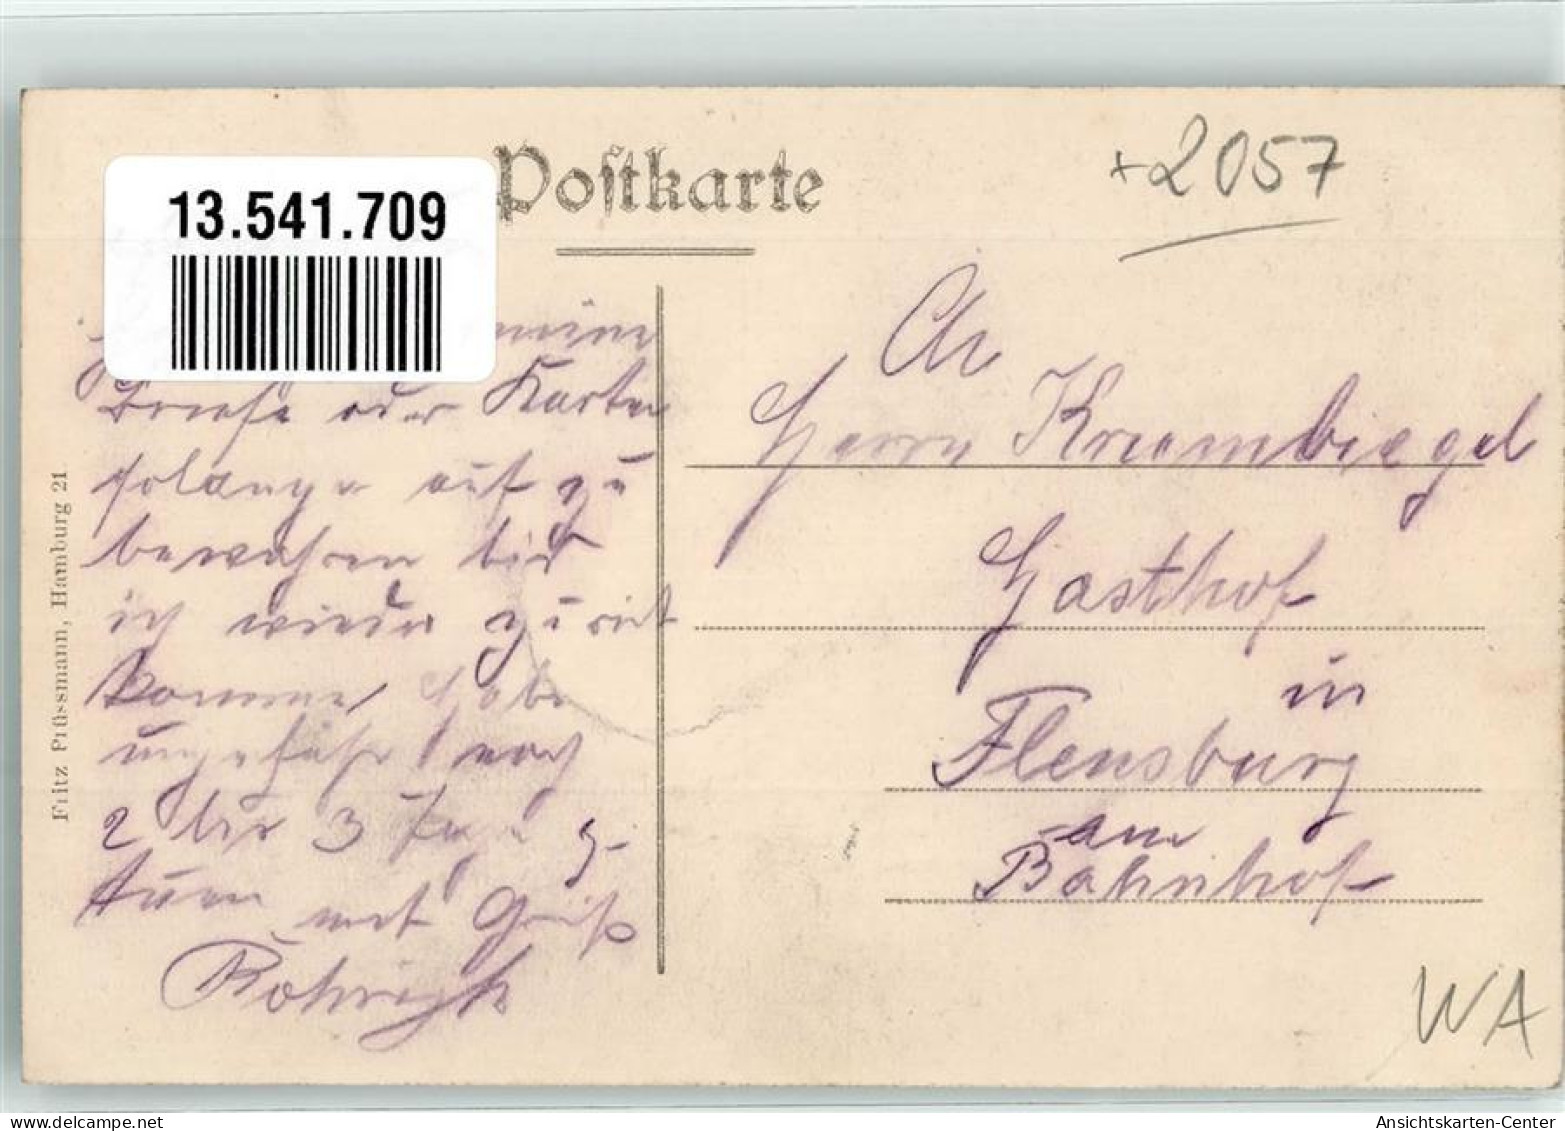 Postkarte
13.541.709
+2057
meine
Briefe oder Karten
solange auf zu
bewahren bis
ich wieder zurück
komme, habe
ungefähr noch
2 bis 3 z
mit Gruß
An
Herrn Krumbiegel
Gasthof
in
Flensburg
am
Bahnhof
WA
Fritz Prüssmann, Hamburg 21.
delcampe.net
Ansichtskarten-Center